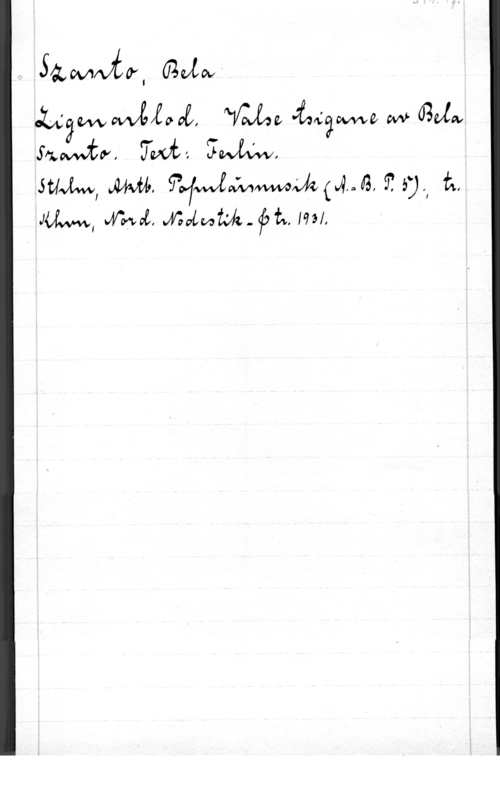 Szanto, Bela
Zigenarblod. Valse tsigane av Bela
Szanto. Text: Ferlin.
Sthlm, Aktb. Populärmusik (A.-B. P. 5), tr.
Khvn, Nord. Nodestik- & tr. 1931.